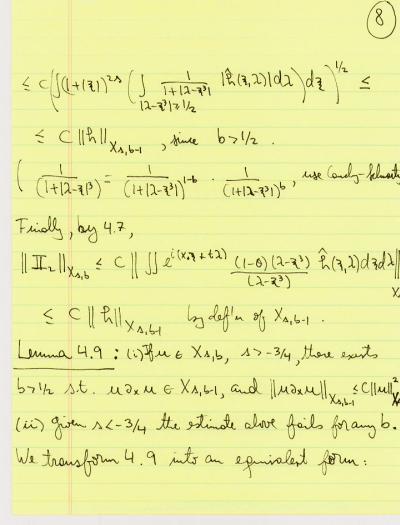 8
≤ C(∫(1+|ξ|)^{2s} (∫_{|λ-ξ³|≥1/2} 1/(1+|λ-ξ³|) |ĥ(ξ,λ)|dλ)dξ)^{1/2} ≤
≤ C ||h||_{X_{s,b-1}}, since b>1/2.
( 1/(1+|λ-ξ|³) = 1/(1+|λ-ξ³|)^{1-b} · 1/(1+|λ-ξ³|)^b, use Cauchy-Schwartz
Finally, by 4.7,
||II_2||_{X_{s,b}} ≤ C || ∫∫ e^{i(xξ+tλ)} (1-θ)(λ-ξ³)/(λ-ξ³) ĥ(ξ,λ)dξdλ||_{X_s
≤ C ||h||_{X_{s,b-1}} by def'n of X_{s,b-1}.
Lemma 4.9: (i) If u ∈ X_{s,b}, s>-3/4, there exists
b>1/2 s.t. u∂_x u ∈ X_{s,b-1}, and ||u∂_x u||_{X_{s,b-1}} ≤ C||u||²_X
(ii) given s<-3/4 the estimate above fails for any b.
We transform 4.9 into an equivalent form: